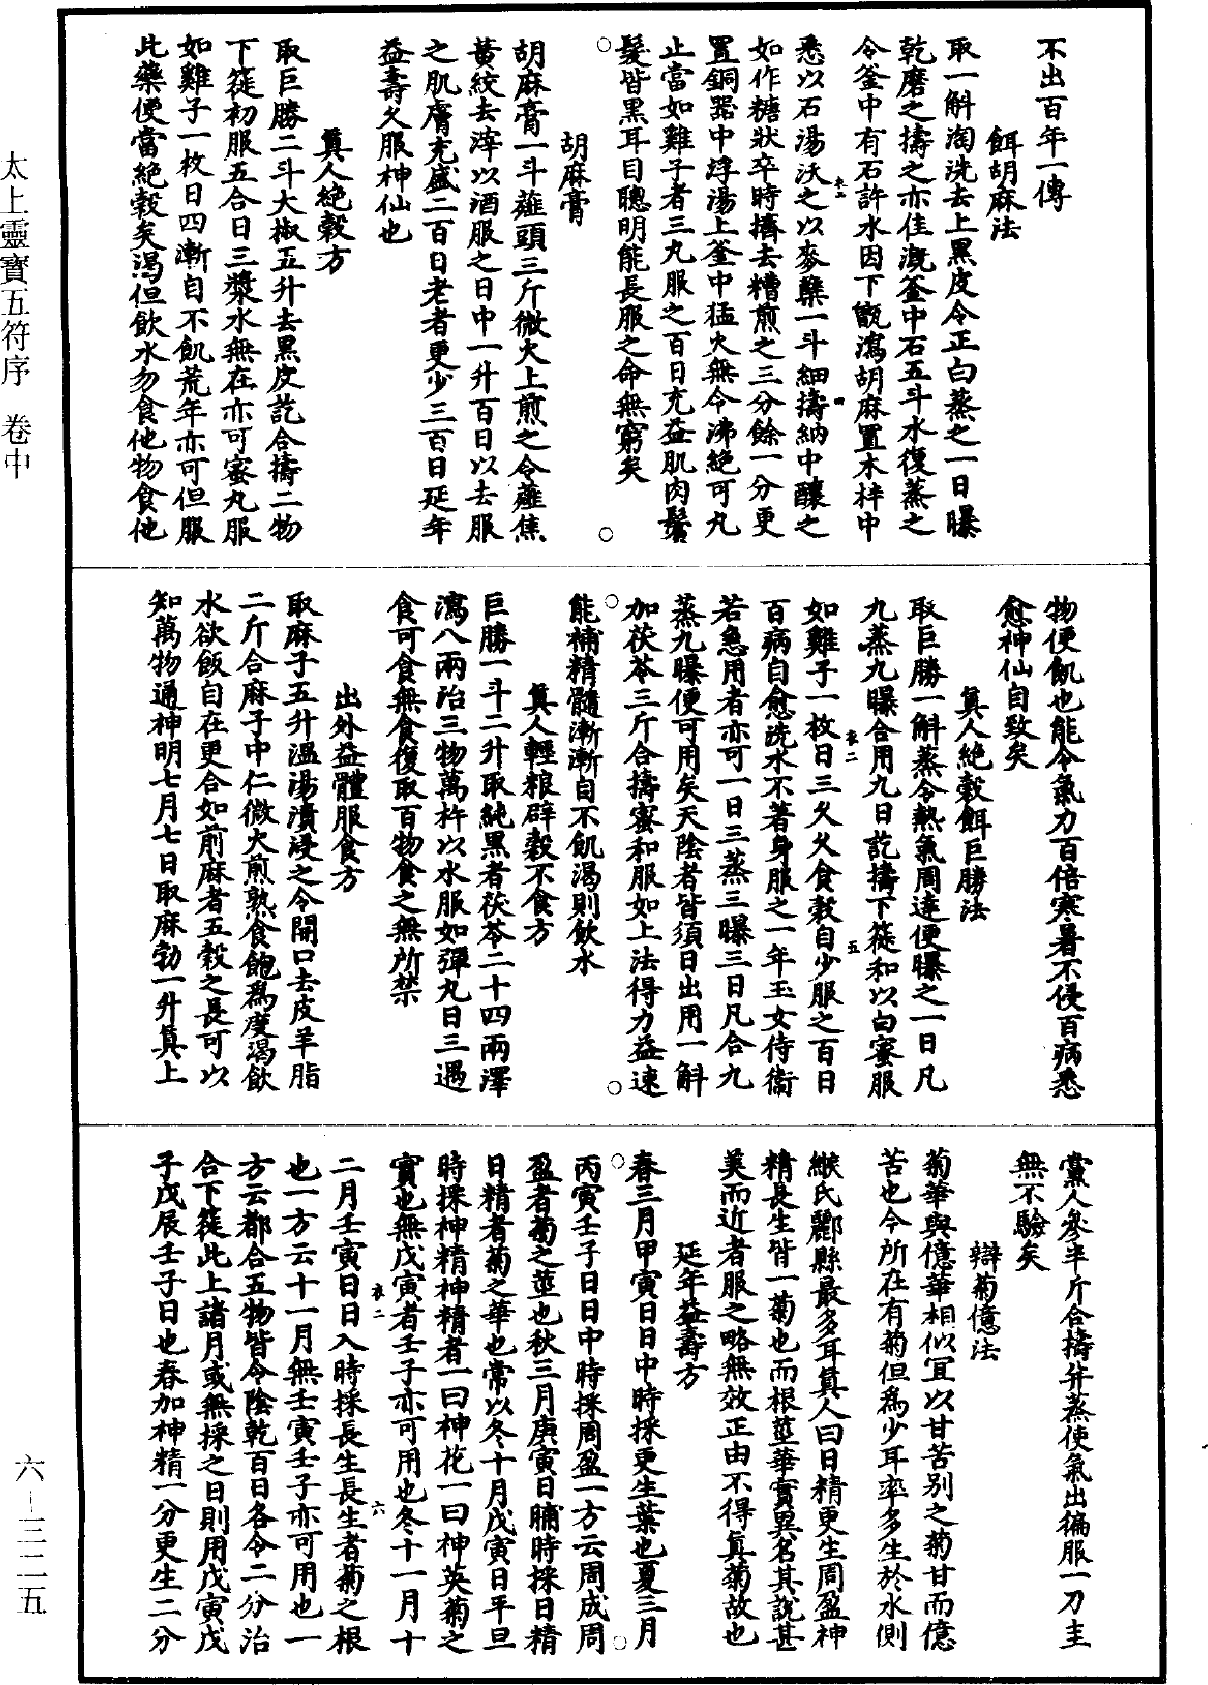 不出百年一傳
餌胡麻法
取一斛淘洗去上黑皮令正白蒸之一日曝
乾磨之擣之亦佳溉釜中石五斗水復蒸之
令釜中有石許水因下甑瀉胡麻置木梓中
悉以石湯沃之以麥蘖一斗細擣納中釀之
如作糖狀卒時擠去糟煎之三分餘一分更
置銅器中浮湯上釜中猛火無令沸絕可丸
止當如雞子者三丸服之百日充益肌肉鬢
髮皆黑耳目聰明能長服之命無窮矣
胡麻膏
胡麻膏一斗薤頭三斤微火上煎之令薤焦
黃絞去滓以酒服之日中一升百日以去服
之肌膚充盛二百日老者更少三百日延年
益壽久服神仙也
真人絕穀方
取巨勝二斗大椒五升去黑皮訖合擣二物
下篵初服五合日三漿水無在亦可蜜丸服
如雞子一枚日四漸自不飢荒年亦可但服
此藥便當絕穀矣渴但飲水勿食他物食他
物便飢也能令氣力百倍寒暑不侵百病悉
愈神仙自致矣
真人絕穀餌巨勝法
取巨勝一斛蒸令熱氣周達便曝之一日凡
九蒸九曝合用九日訖擣下篵和以白蜜服
如雞子一枚日三久久食穀自少服之百日
百病自愈洗水不著身服之一年玉女侍衛
若急用者亦可一日三蒸三曝三日凡合九
蒸九曝便可用矣天陰者皆須日出用一斛
加茯苓三斤合擣蜜和服如上法得力益速
能補精髓漸漸自不飢渴則飲水
真人輕粮辟穀不食方
巨勝一斗二升取純黑者茯苓二十四兩澤
瀉八兩治三物萬杵以水服如彈丸日三遇
食可食無食復取百物食之無所禁
出外益體服食方
取麻子五升溫湯漬浸之令開口去皮羊脂
二斤合麻子中仁微火煎熟食飽為度渴飲
水欲飯自在更合如前麻者五穀之長可以
知萬物通神明七月七日取麻勃一升真上
黨人參半斤合擣并蒸使氣出徧服一刀圭
無不驗矣
辯菊憶法
菊華與憶華相似宜以甘苦別之菊甘而憶
苦也今所在有菊但為少耳率多生於水側
緱氏酈縣最多耳真人曰日精更生周盈神
精長生皆一菊也而根莖華實異名其說甚
美而近者服之略無效正由不得真菊故也
延年益壽方
春三月甲寅日日中時採更生葉也夏三月
丙寅壬子日日中時採周盈一方云周成周
盈者菊之莖也秋三月庚寅日晡時採日精
日精者菊之華也常以冬十月戊寅日平旦
時採神精神精者一曰神花一曰神英菊之
實也無戊寅者壬子亦可用也冬十一月十
二月壬寅日日入時採長生長生者菊之根
也一方云十一月無壬寅壬子亦可用也一
方云都合五物皆令陰乾百日各令二分治
合下篵此上諸月或無採之日則用戊寅戊
子戊辰壬子日也春加神精一分更生二分
太上靈寶五符序 卷中
六—三二五